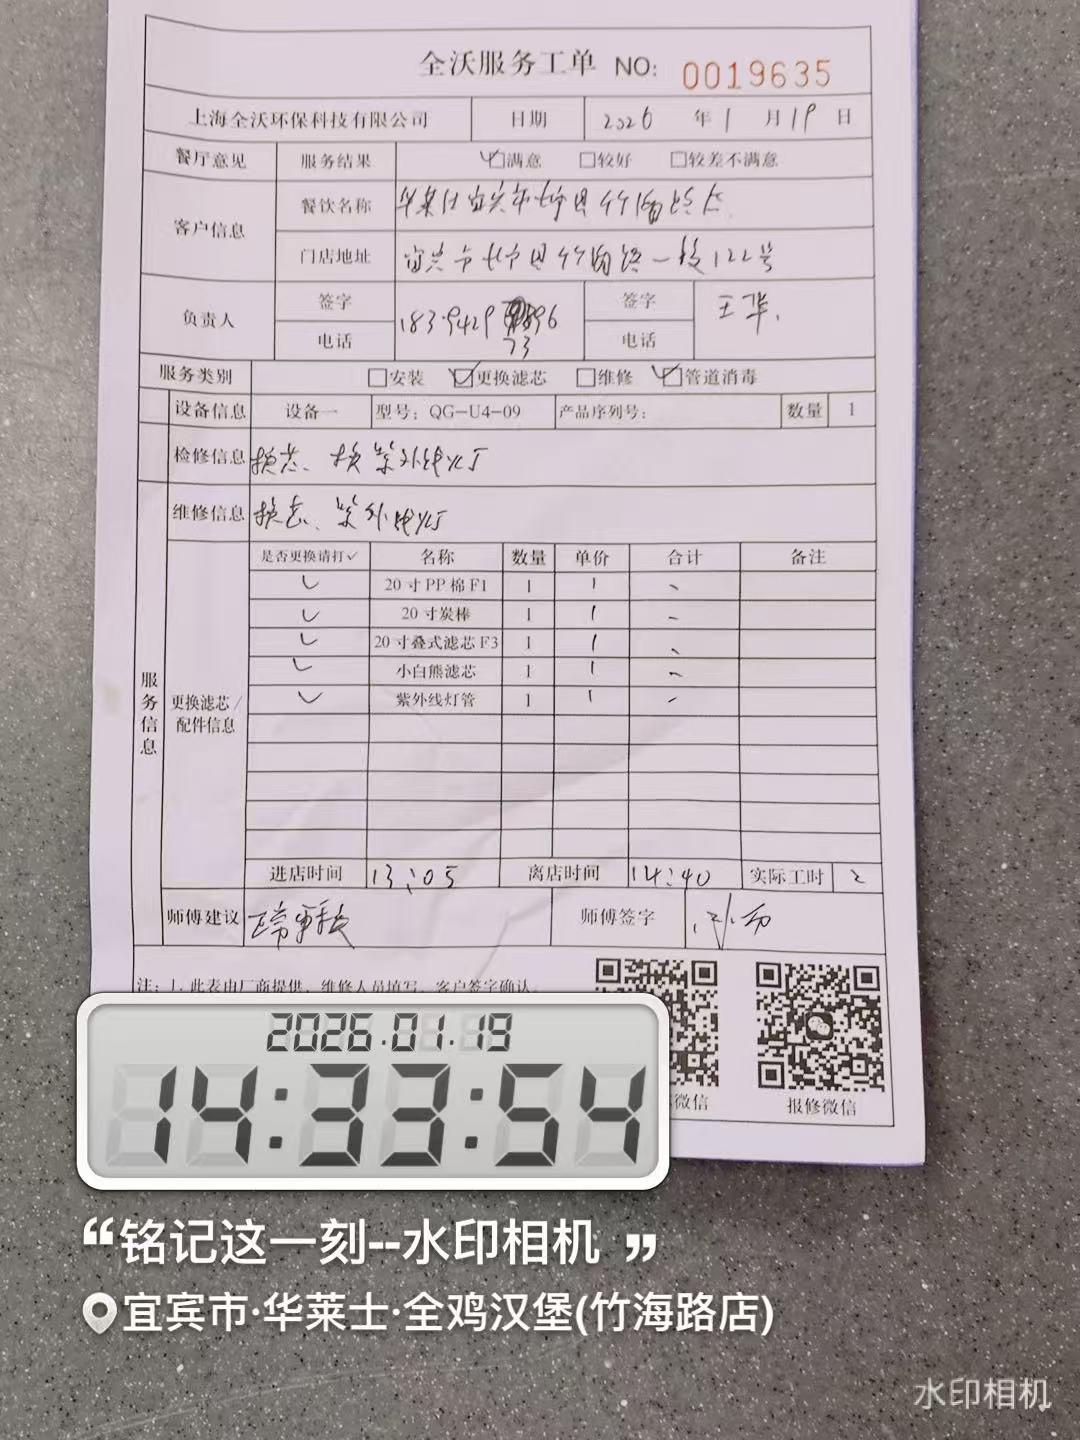 全沃服务工单 NO: 0019635
上海全沃环保科技有限公司 日期 2026 年 1 月 19 日
餐厅意见 服务结果 ☑满意 □较好 □较差不满意
客户信息 餐饮名称 华莱仕宜宾市长宁县竹海路店
门店地址 宜宾市长宁县竹海路一段122号
负责人 签字 签字 王华
电话 1839429 896 电话
73
服务类别 □安装 ☑更换滤芯 □维修 ☑管道消毒
设备信息 设备一 型号：QG-U4-09 产品序列号： 数量 1
检修信息 换芯、换紫外线灯
维修信息 换芯、紫外线灯
服务信息
更换滤芯/配件信息
是否更换请打✓ 名称 数量 单价 合计 备注
✓ 20寸PP棉F1 1 1 -
✓ 20寸炭棒 1 1 -
✓ 20寸叠式滤芯F3 1 1 -
✓ 小白熊滤芯 1 1 -
✓ 紫外线灯管 1 1 -
进店时间 13:05 离店时间 14:40 实际工时 2
师傅建议 正常更换 师傅签字
注：1. 此表由厂商提供，维修人员填写，客户签字确认。
微信 报修微信
2026.01.19
14:33:54
“铭记这一刻--水印相机 ”
宜宾市·华莱士·全鸡汉堡(竹海路店)
水印相机